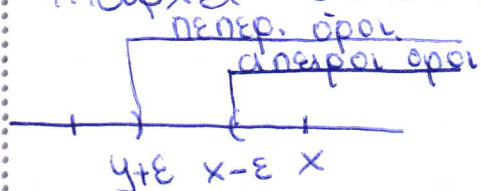 πεπερ. όροι.
άπειροι όροι
y+ε x-ε x